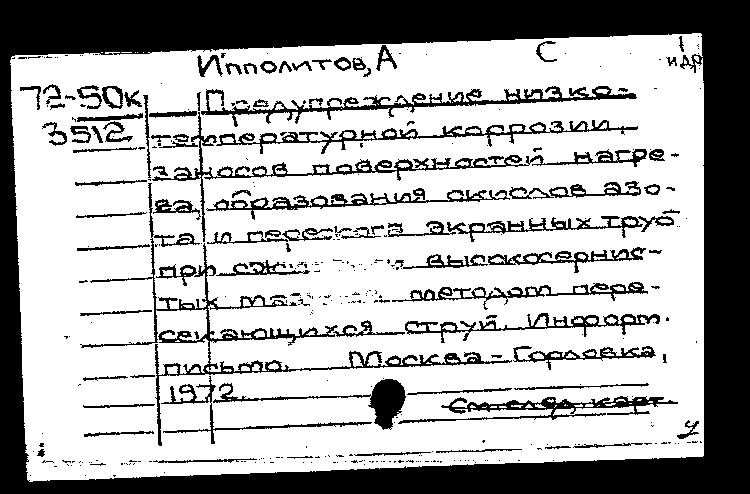 Ипполитов, А С 1
и др
72-50к Предупреждение низко-
3512 температурной коррозии,
заносов поверхностей нагре-
ва, образования окислов азо-
та и пережога экранных труб
при сжигании высокосернис-
тых мазутов методом пере-
секающихся струй. Информ.
письмо. Москва-Горловка,
1972.
См след. карт.
у